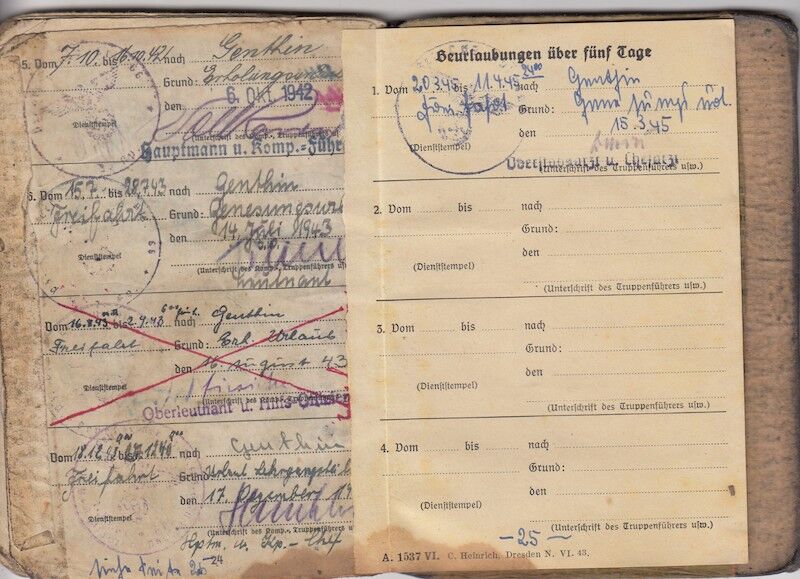 5. Vom 7.10. bis 16.10.42 nach Genthin
Grund: Erholungsurlaub
den 6. Okt. 1942
Dienststempel
(Unterschrift des Komp.-, Truppenführers
Hauptmann u. Komp.-Führer
6. Vom 15.7. bis 28.7.43 nach Genthin
Freifahrt Grund: Genesungsurl
den 14. Juli 1943
Dienststempel
(Unterschrift des Komp.-, Truppenführers usw
Leutnant
Vom 16.8.43 bis 2.9.43 nach Genthin
Freifahrt Grund: Erh. Urlaub
den 16. August 43
Dienststempel
(Unterschrift des Komp.-, Truppenführers
Oberleutnant u.
Vom 18.12. bis nach Genthin
Freifahrt Grund: Urlaub
den 17. Dezember
Dienststempel
(Unterschrift des Komp., Truppenführers
Hptm. u. Kp.- Chef
siehe Seite 25
24
Beurlaubungen über fünf Tage
1. Vom 20.3.45 bis 11.4.45 24⁰⁰ nach Genthin
Grund:
den 15.3.45
(Dienststempel)
Oberstabsarzt u. Chefarzt
(Unterschrift des Truppenführers usw.)
2. Vom bis nach
Grund:
den
(Dienststempel)
(Unterschrift des Truppenführers usw.)
3. Vom bis nach
Grund:
den
(Dienststempel)
(Unterschrift des Truppenführers usw.)
4. Vom bis nach
Grund:
den
(Dienststempel)
(Unterschrift des Truppenführers usw.)
- 25 -
A. 1537 VI. C. Heinrich, Dresden N. VI. 43.